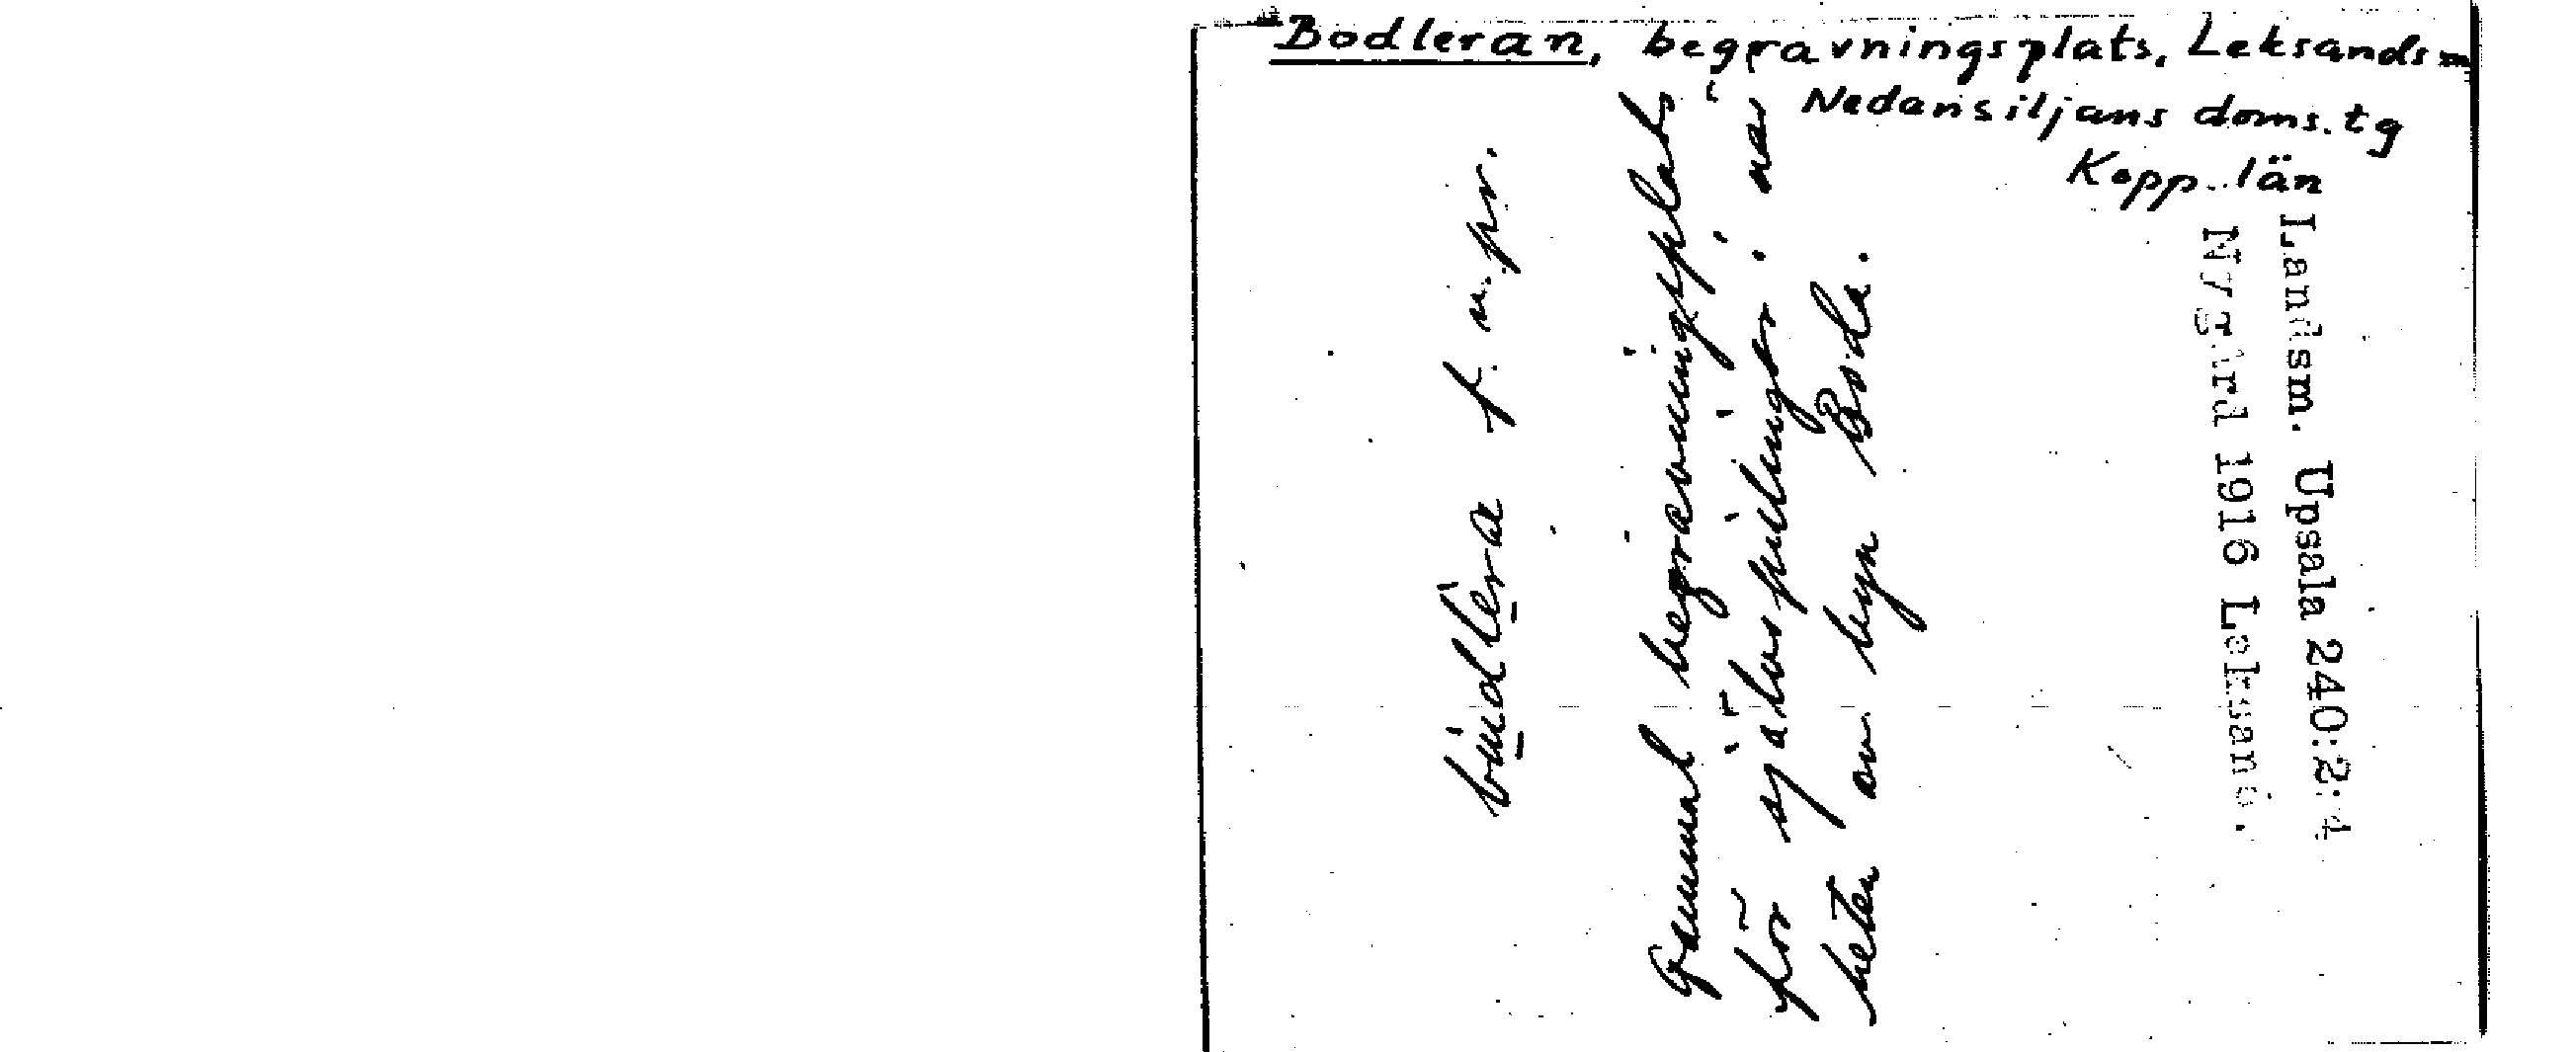 Bodleran, begravningsplats, Leksands sn
Nedansiljans doms. tg
Kopp. län
bùdlèra f. n. pr.
Gammal begravningsplats
för självspillingar i när
heten av byn Boda.
Landsm. Upsala 240:2:4
Nygård 1916 Leksand.